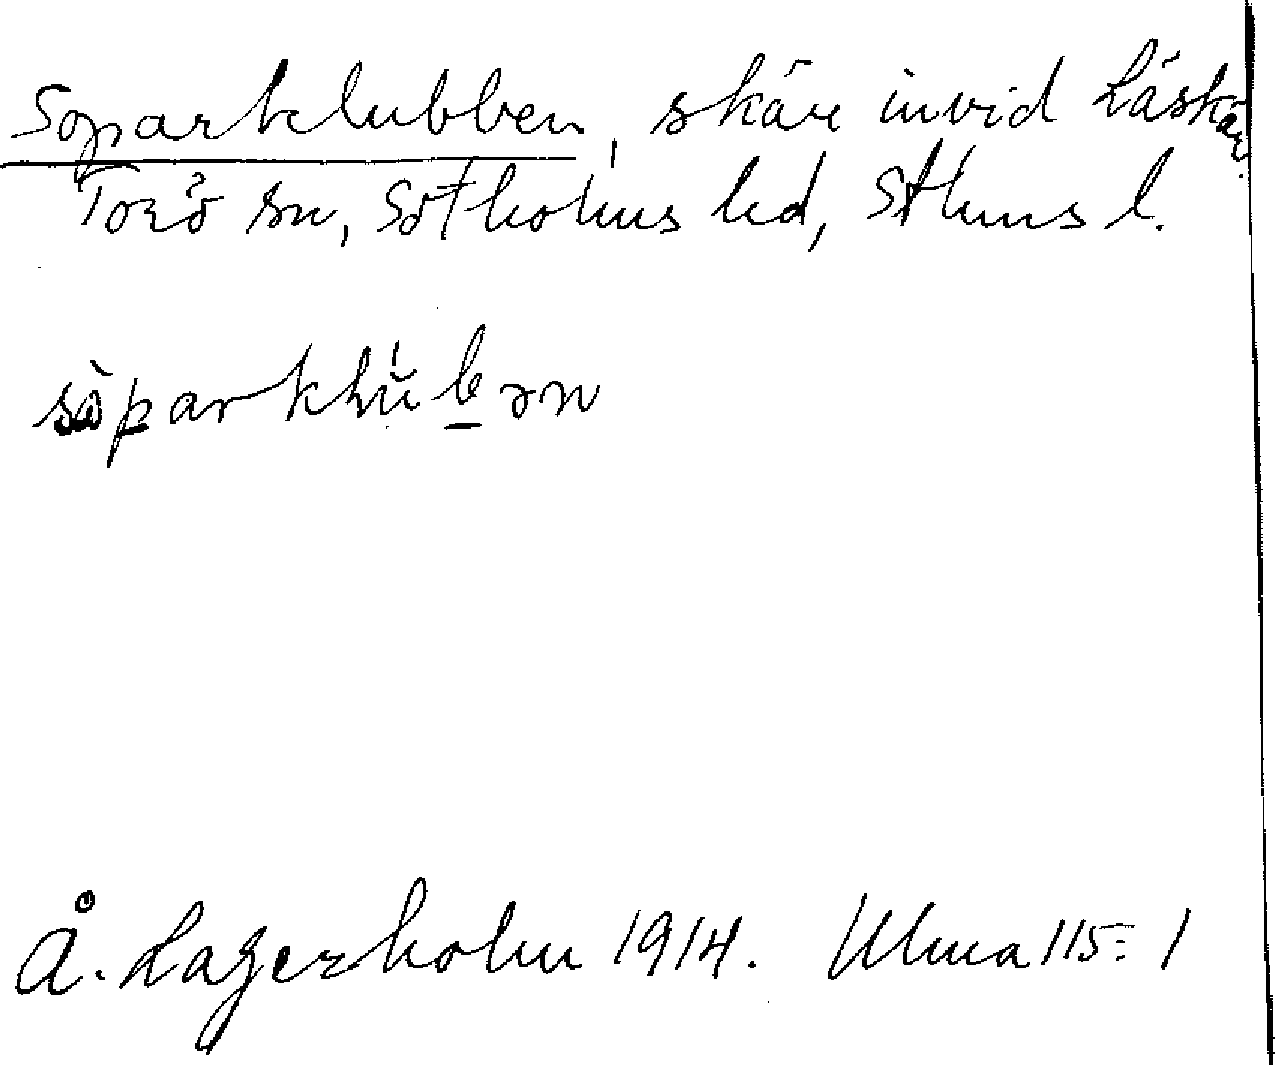 Soparklubben, skär invid Låskär.
Torö sn, Sotholms hd, Sthms l.
sòparklŭ́bən
Å. Lagerholm 1914. Ulma 115:1